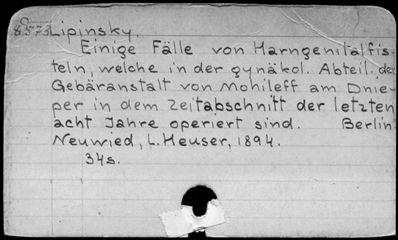 8573 Lipinsky.
Einige Fälle von Harngenitalfis-
teln, welche in der gynäkol. Abteil. der
Gebäranstalt von Mohileff am Dnie-
per in dem Zeitabschnitt der letzten
acht Jahre operiert sind. Berlin-
Neuwied, L. Heuser, 1894.
34s.